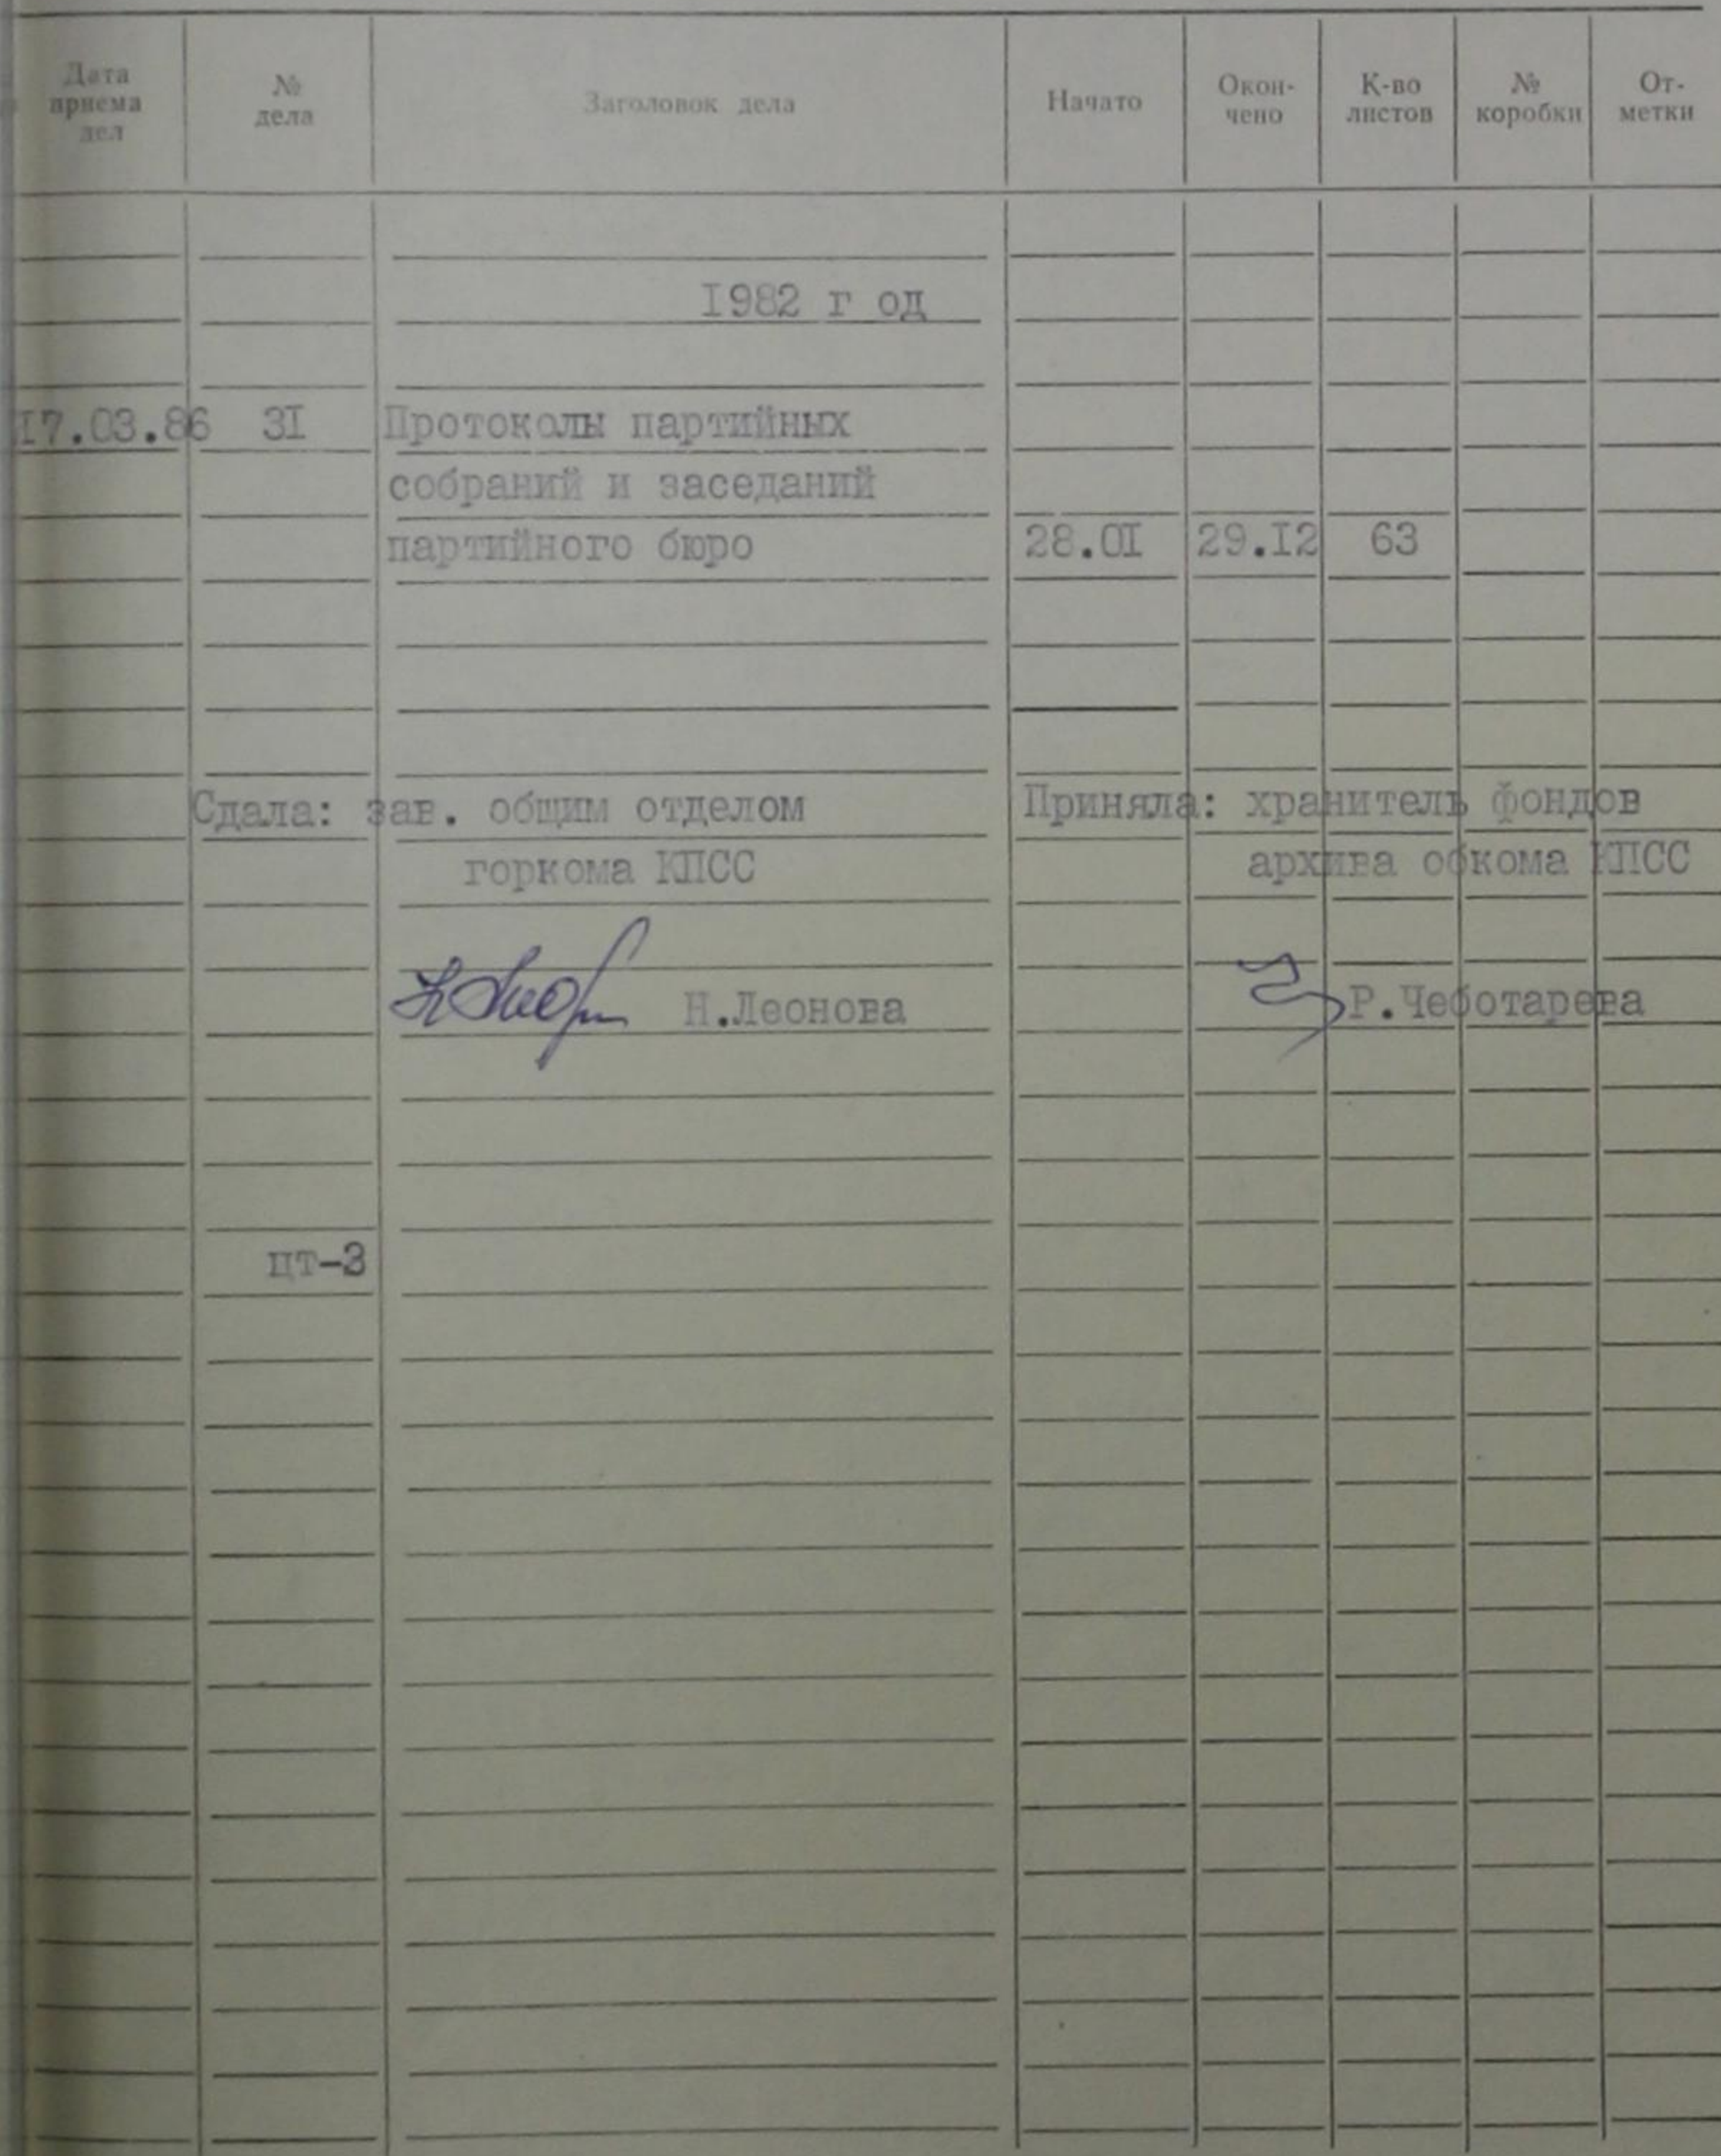 Дата приема дел № дела Заголовок дела Начато Окон-чено К-во листов № коробки От-метки
I982 г од
I7.03.86 3I Протоколы партийных
собраний и заседаний
партийного бюро 28.0I 29.I2 63
Сдала: зав. общим отделом Приняла: хранитель фондов
горкома КПСС архива обкома КПСС
Н.Леонова Р.Чеботарева
цт-3